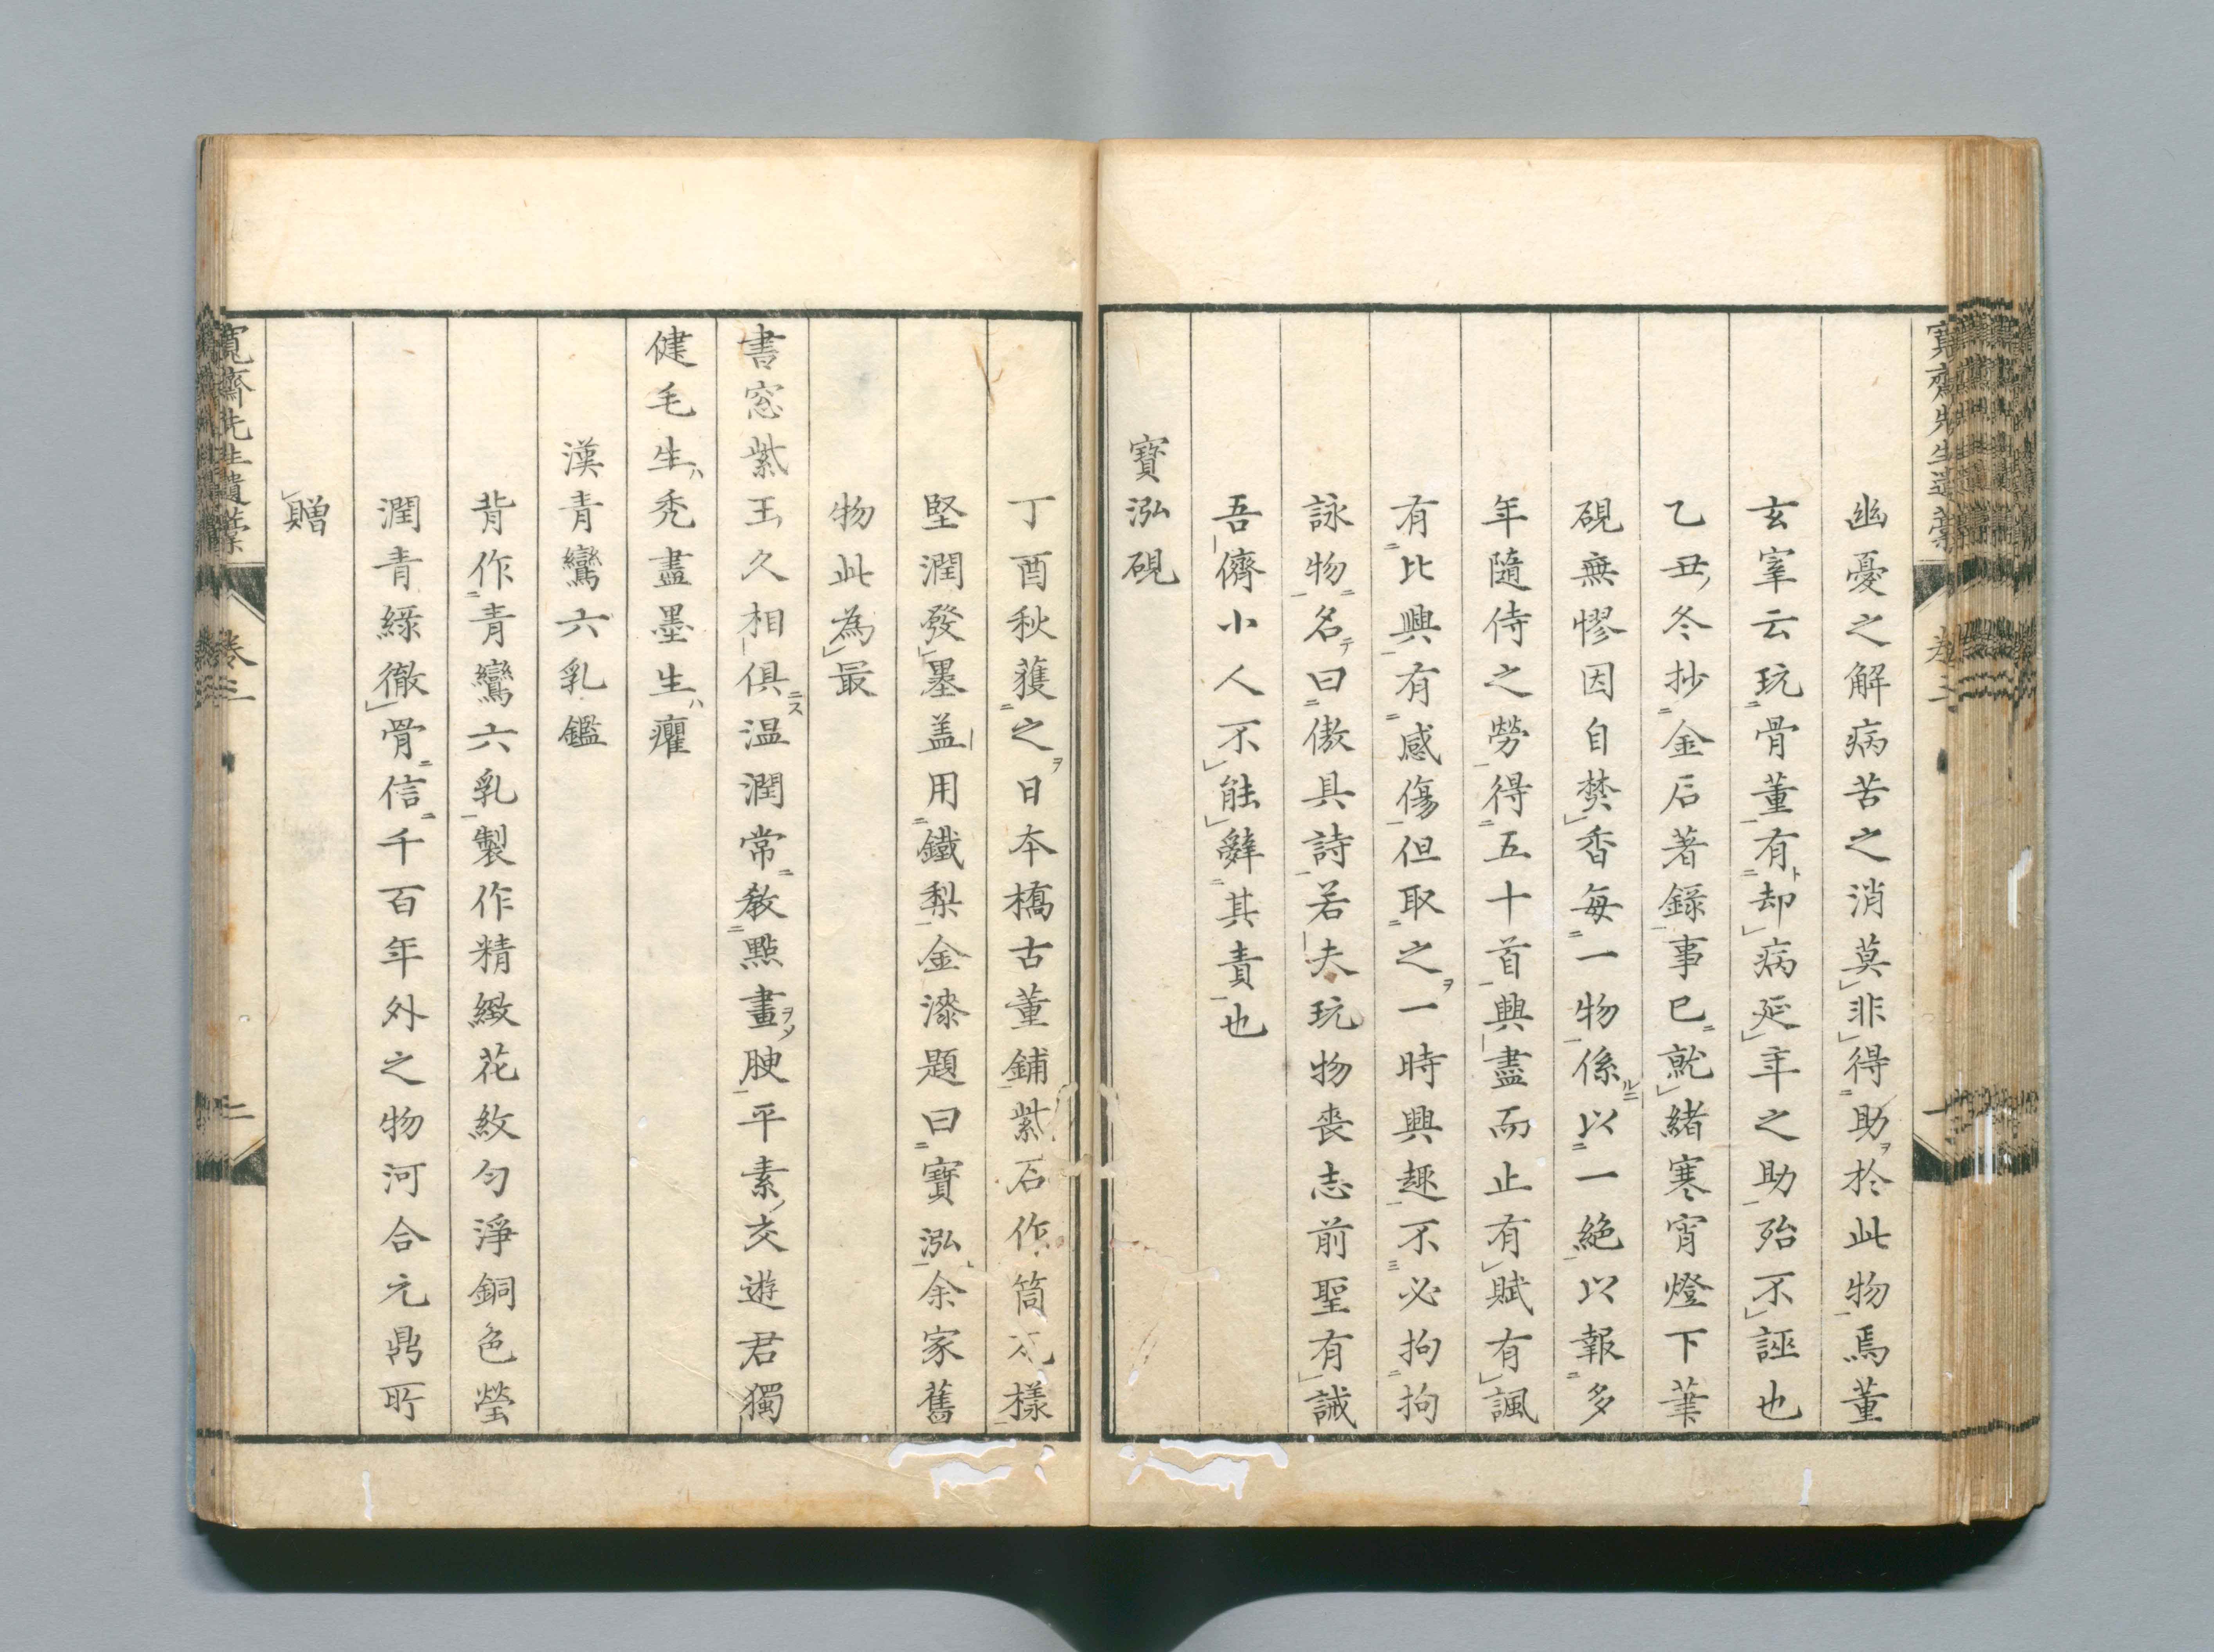 幽憂之解病苦之消莫非得助於此物焉董
玄宰云玩骨董有却病延年之助殆不誣也
乙丑冬抄金石著錄事已就緒寒宵燈下筆
硯無憀因自焚香每一物係以一絕以報多
年隨侍之勞得五十首興盡而止有賦有諷
有比興有感傷但取之一時興趣不必拘拘
詠物名曰傲具詩若夫玩物喪志前聖有誡
吾儕小人不能辭其責也
寶泓硯
丁酉秋獲之日本橋古董鋪紫石作筒瓦樣
堅潤發墨盖用鐵梨金漆題曰寶泓余家舊
物此為最
書窓紫玉久相俱温潤常教點畫腴平素交遊君獨
健毛生禿盡墨生癯
漢青鸞六乳鑑
背作青鸞六乳製作精緻花紋勻淨銅色瑩
潤青綠徹骨信千百年外之物河合元鼎所
贈
寬齋先生遺藁 卷三 二